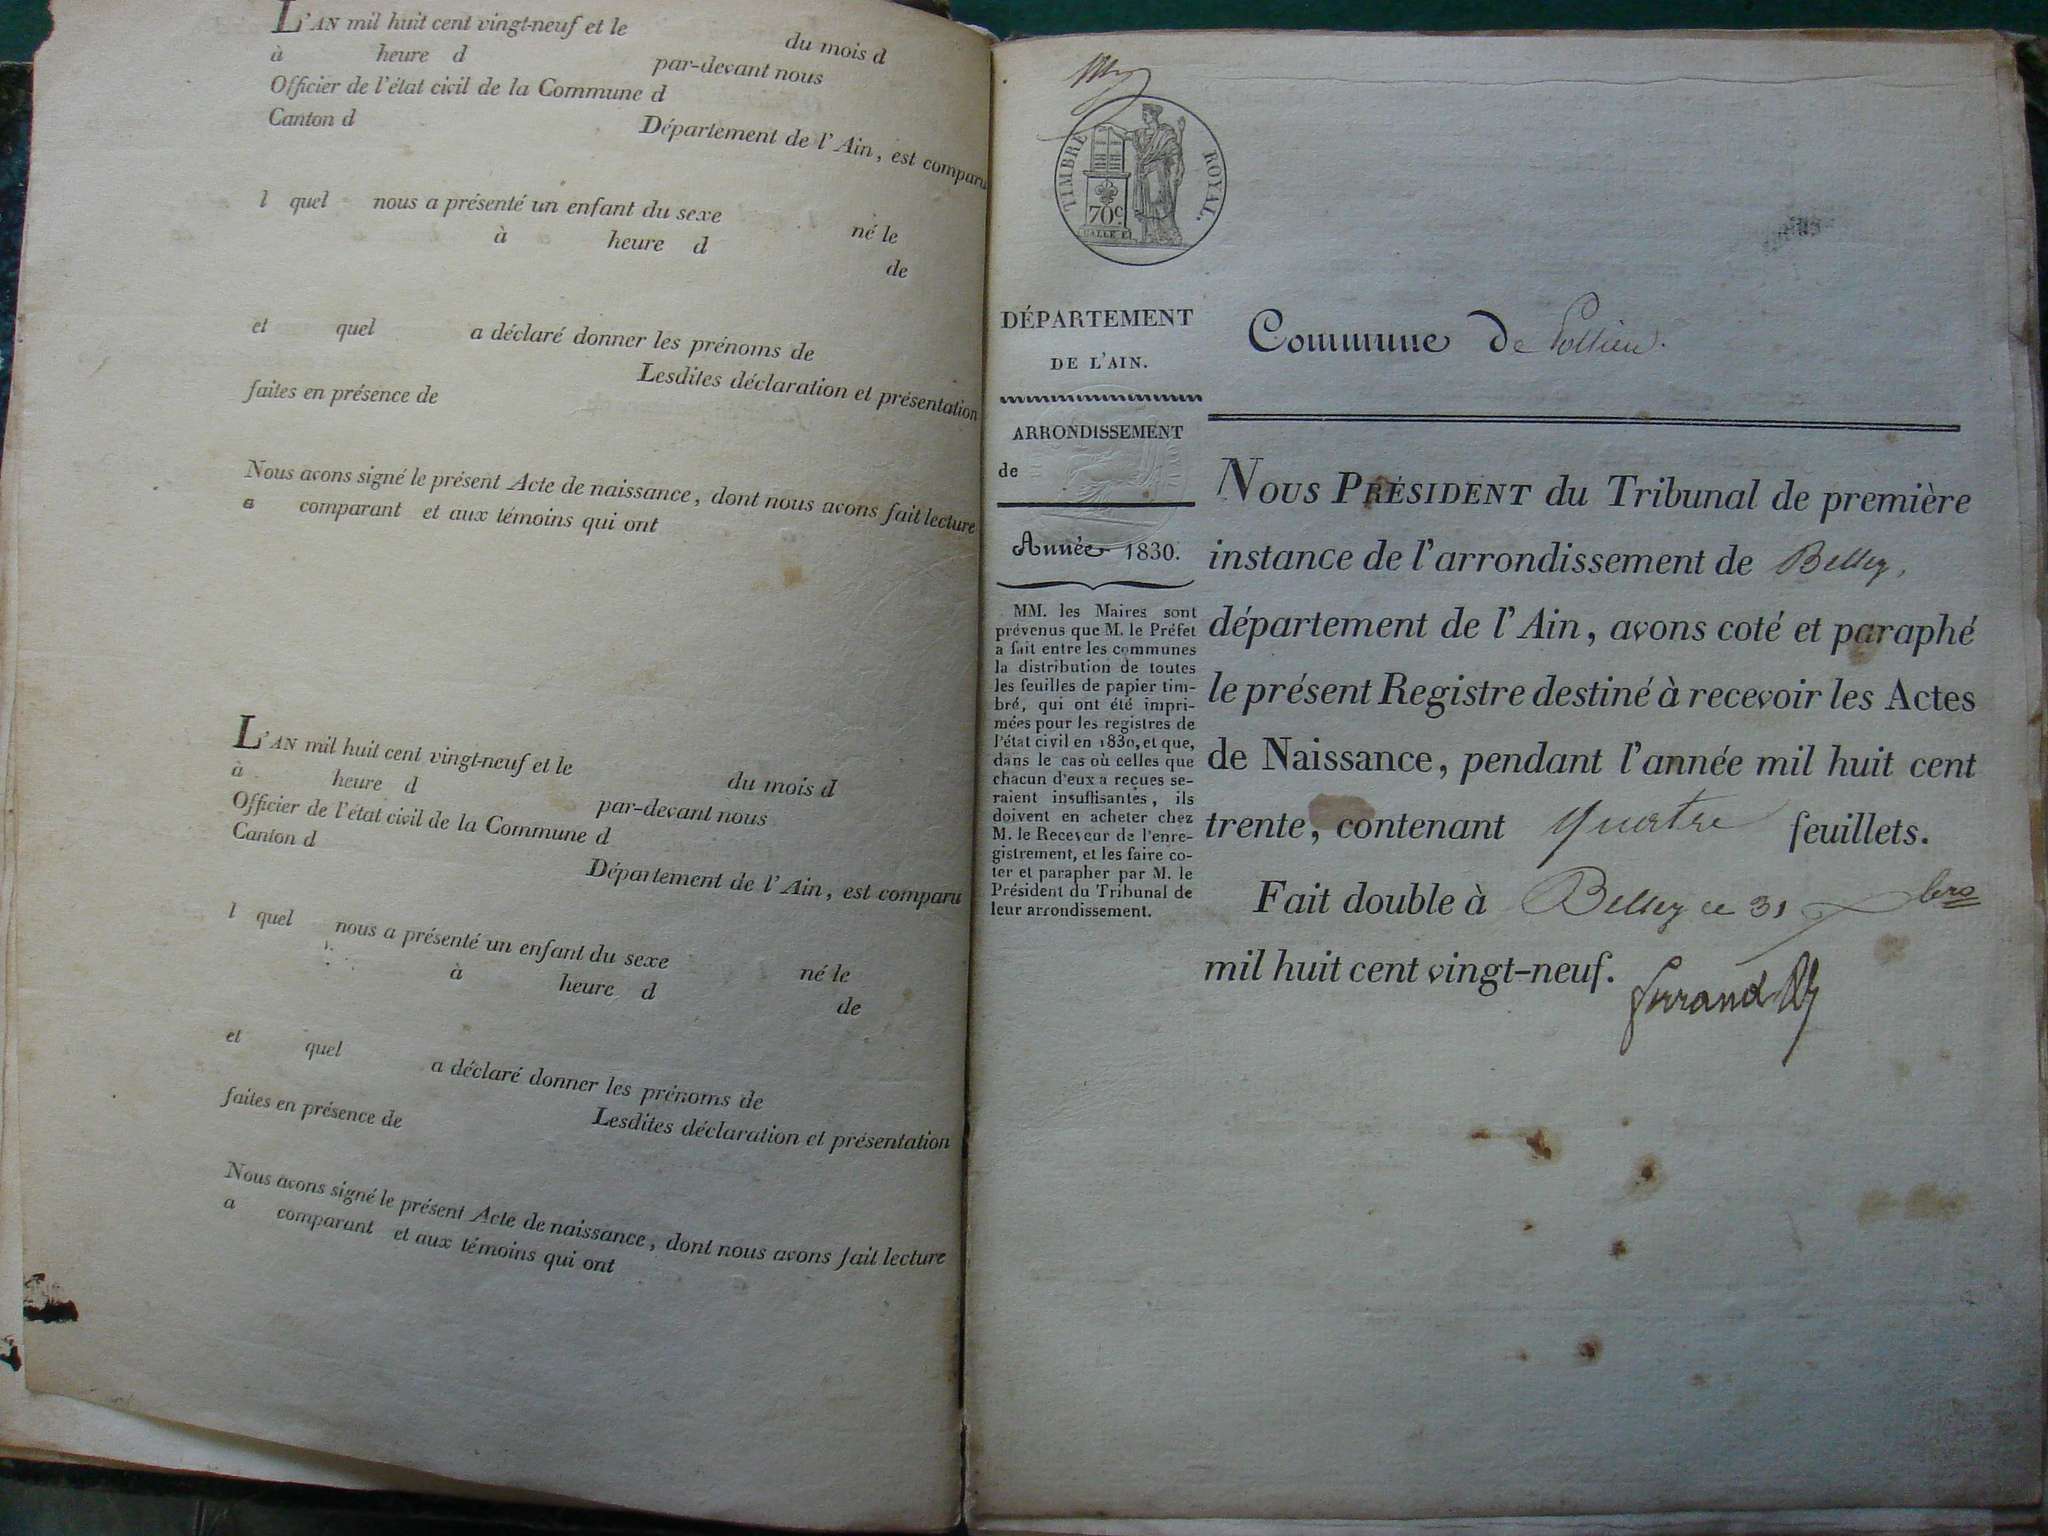 L'AN mil huit cent vingt-neuf et le du mois d
à heure d par-devant nous
Officier de l'état civil de la Commune d
Canton d Département de l'Ain, est comparu
l quel nous a présenté un enfant du sexe né le
à heure d de
et quel a déclaré donner les prénoms de
Lesdites déclaration et présentation
faites en présence de
Nous avons signé le présent Acte de naissance, dont nous avons fait lecture
a comparant et aux témoins qui ont
L'AN mil huit cent vingt-neuf et le du mois d
à heure d par-devant nous
Officier de l'état civil de la Commune d
Canton d Département de l'Ain, est comparu
l quel nous a présenté un enfant du sexe né le
à heure d de
et quel a déclaré donner les prénoms de
Lesdites déclaration et présentation
faites en présence de
Nous avons signé le présent Acte de naissance, dont nous avons fait lecture
a comparant et aux témoins qui ont
TIMBRE ROYAL.
70c
DÉPARTEMENT
DE L'AIN.
ARRONDISSEMENT
de
Année 1830.
MM. les Maires sont
prévenus que M. le Préfet
a fait entre les communes
la distribution de toutes
les feuilles de papier tim-
bré, qui ont été impri-
mées pour les registres de
l'état civil en 1830, et que,
dans le cas où celles que
chacun d'eux a reçues se-
raient insuffisantes, ils
doivent en acheter chez
M. le Receveur de l'enre-
gistrement, et les faire co-
ter et parapher par M. le
Président du Tribunal de
leur arrondissement.
Commune de Pollieu.
NOUS PRÉSIDENT du Tribunal de première
instance de l'arrondissement de Belley,
département de l'Ain, avons coté et paraphé
le présent Registre destiné à recevoir les Actes
de Naissance, pendant l'année mil huit cent
trente, contenant quatre feuillets.
Fait double à Belley ce 31 Xbre
mil huit cent vingt-neuf.